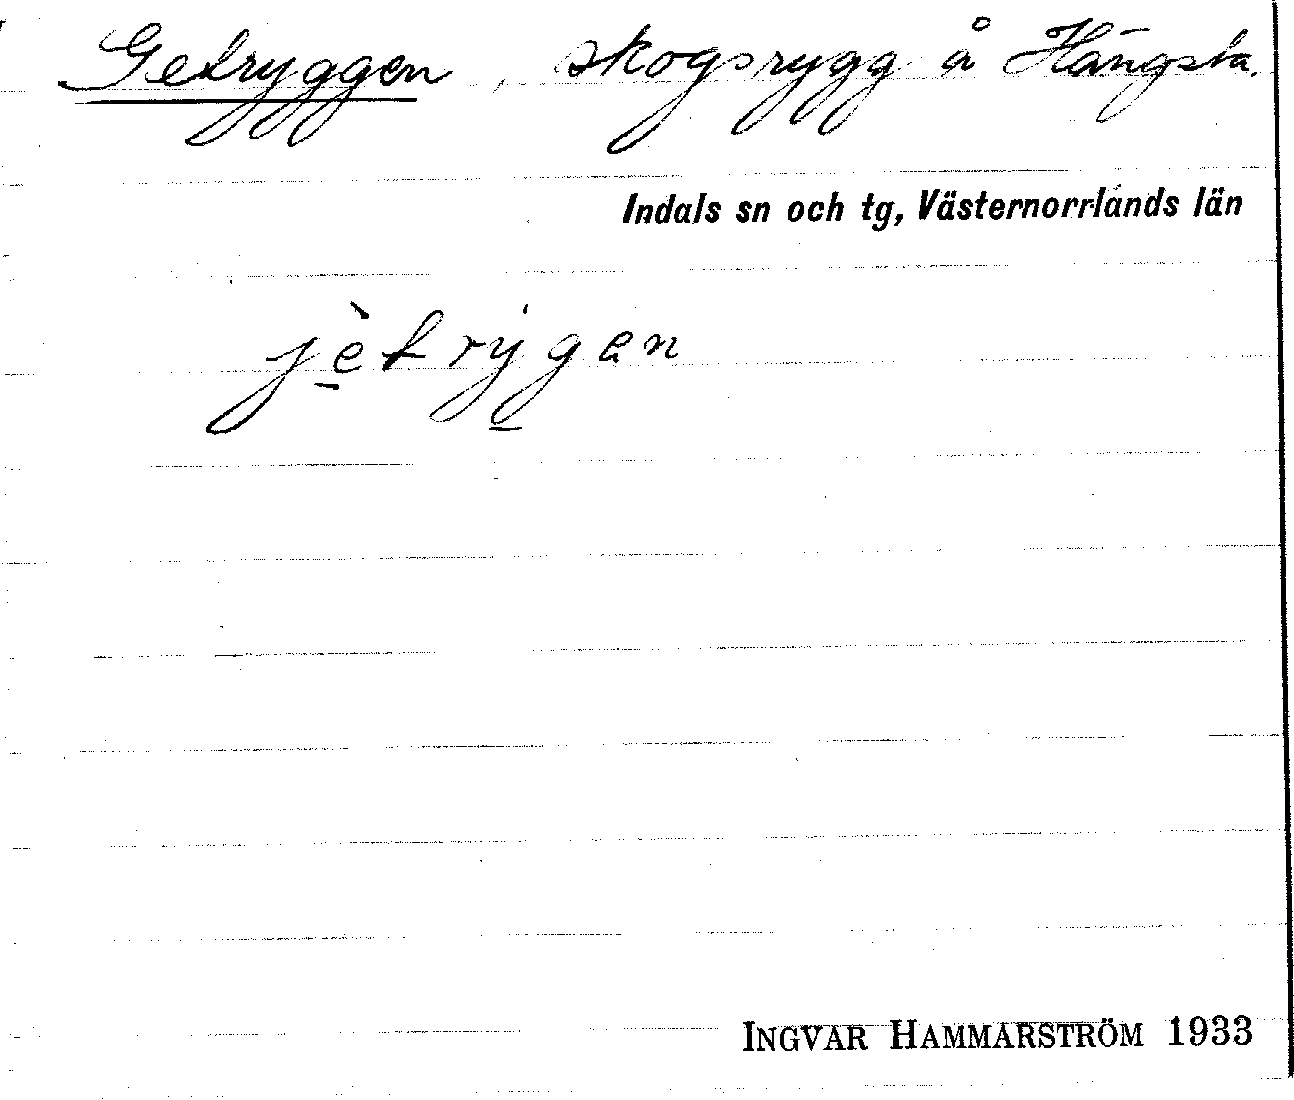 Getryggen, skogsrygg å Hängsta.
Indals sn och tg, Västernorrlands län
jè̱trýg̱en
INGVAR HAMMARSTRÖM 1933